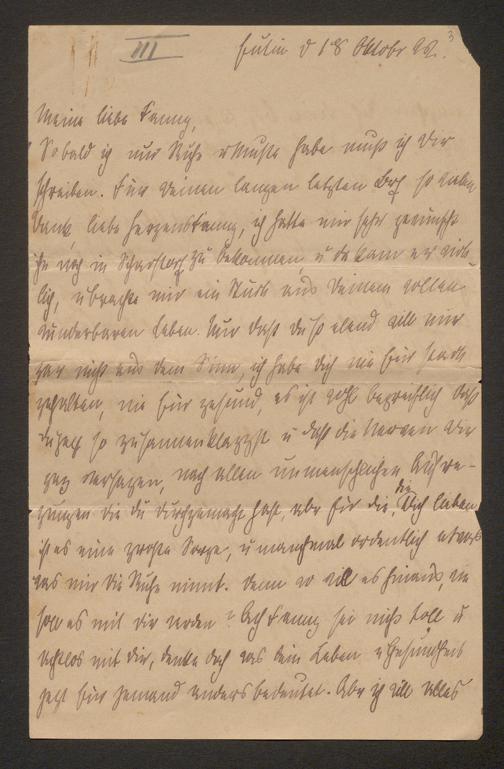 III
3
Eutin d 18 Oktobr 92.
Meine liebe Fanny,
Sobald ich nur Ruhe u Muße habe muß ich Dir
schreiben. Für Deinen langen letzten Brf so vielen
Dank, liebe Herzensfanny, ich hatte mir sehr gewünscht
ihn noch in Scharstorf zu bekommen, u da kam er wirk-
lich, u brachte mir ein Stück aus Deinem vollen
wunderbaren Leben. Nur daß du so elend will mir
gar nicht aus dem Sinn, ich habe dich nie für stark
gehalten, nie für gesund, es ist wohl begreiflich daß
du jetzt so zusammenklappst u daß die Nerven Dir
ganz versagen, nach allen unmenschlichen Aufre-
gungen die du durchgemacht hast, aber für die, die Dich lieben
ist es eine große Sorge, u manchmal ordentlich etwas
was mir die Ruhe nimmt. Denn wo will es hinaus, wie
soll es mit dir werden? Ach Fanny sei nicht toll u
achtlos mit dir, denke doch was dein Leben u Gesundheit
jetzt für jemand anders bedeutet. Aber ich will alles